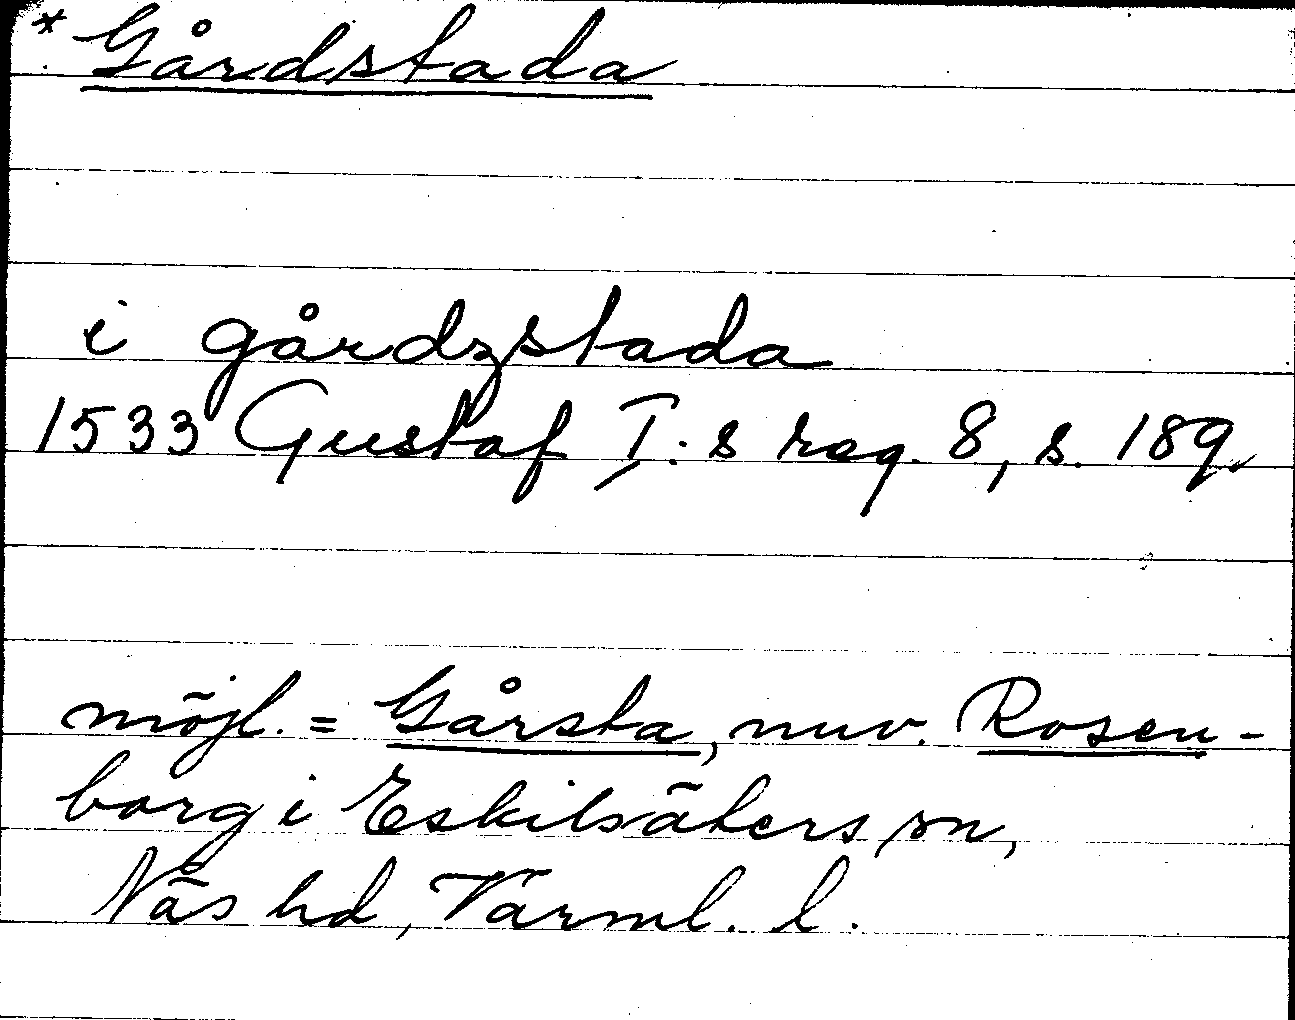 * Gårdstada
i gårdzstada
1533 Gustaf I:s reg. 8, s. 189
möjl. = Gårsta, nuv. Rosen-
borg i Eskilsäters sn,
Näs hd, Värml. l.